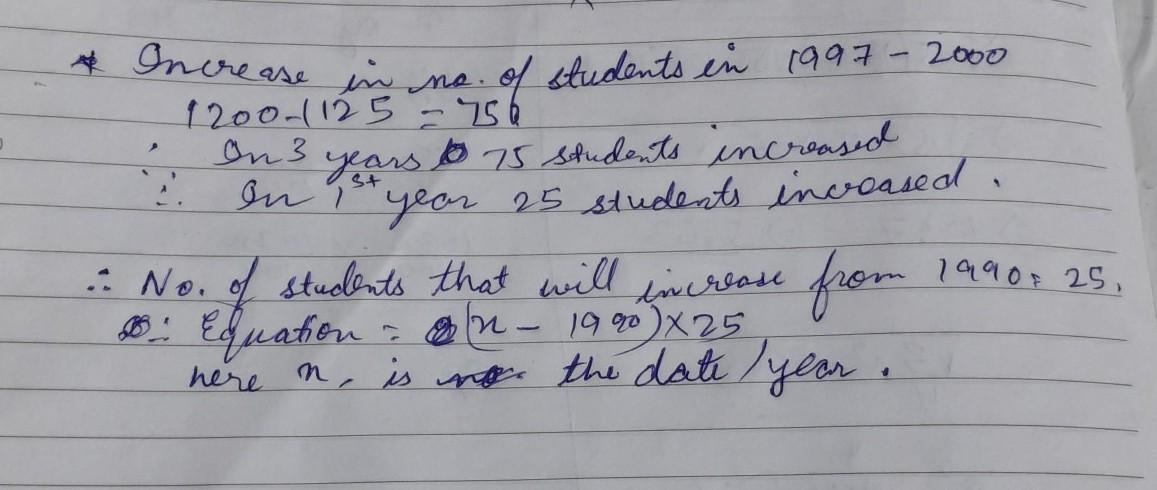 * Increase in no. of students in 1997 - 2000
1200-1125 = 75
∴ In 3 years 75 students increased
∴ In 1st year 25 students increased.
∴ No. of students that will increase from 1990 = 25.
∴ Equation = (x - 1990) × 25
here x, is the date / year.